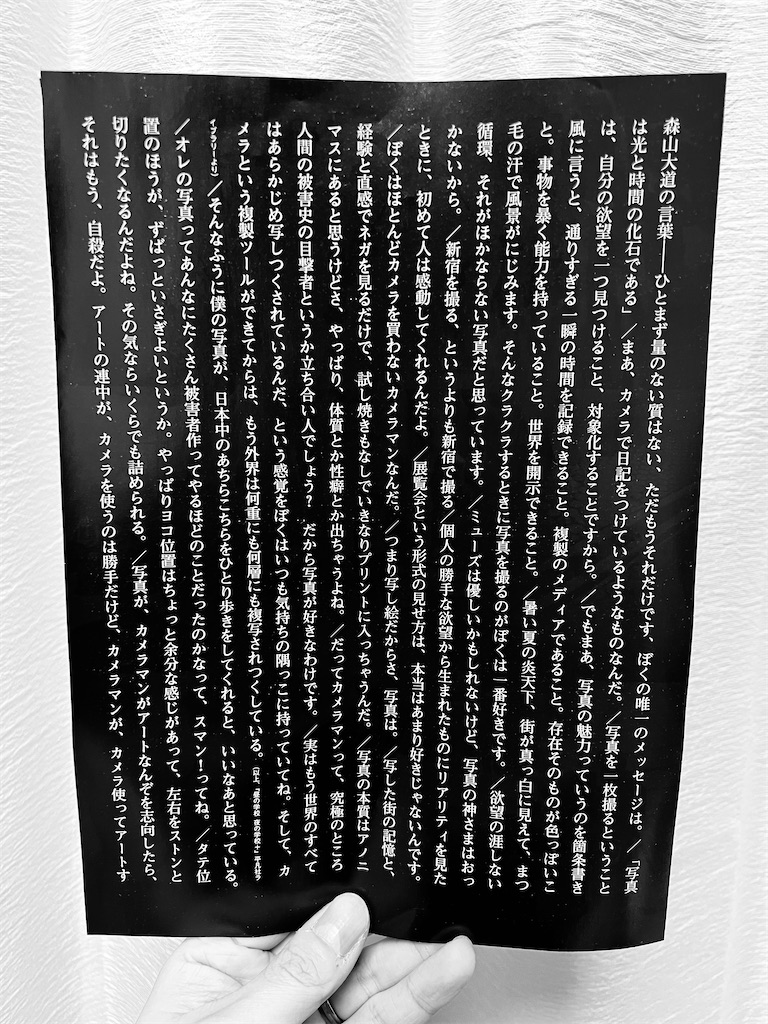 森山大道の言葉――ひとまず量のない質はない、ただもうそれだけです、ぼくの唯一のメッセージは。／「写真
は光と時間の化石である」／まあ、カメラで日記をつけているようなものなんだ。／写真を一枚撮るということ
は、自分の欲望を一つ見つけること、対象化することですから。／でもまあ、写真の魅力っていうのを箇条書き
風に言うと、通りすぎる一瞬の時間を記録できること。複製のメディアであること。存在そのものが色っぽいこ
と。事物を暴く能力を持っていること。世界を開示できること。／暑い夏の炎天下、街が真っ白に見えて、まつ
毛の汗で風景がにじみます。そんなクラクラするときに写真を撮るのがぼくは一番好きです。／欲望の涯しない
循環、それがほかならない写真だと思っています。／ミューズは優しいかもしれないけど、写真の神さまはおっ
かないから。／新宿を撮る、というよりも新宿で撮る／個人の勝手な欲望から生まれたものにリアリティを見た
ときに、初めて人は感動してくれるんだよ。／展覧会という形式の見せ方は、本当はあまり好きじゃないんです。
／ぼくはほとんどカメラを買わないカメラマンなんだ。／つまり写し絵だからさ、写真は。／写した街の記憶と、
経験と直感でネガを見るだけで、試し焼きもなしでいきなりプリントに入っちゃうんだ。／写真の本質はアノニ
マスにあると思うけどさ、やっぱり、体質とか性癖とか出ちゃうよね。／だってカメラマンって、究極のところ
人間の被害史の目撃者というか立ち合い人でしょう？　だから写真が好きなわけです。／実はもう世界のすべて
はあらかじめ写しつくされているんだ、という感覚をぼくはいつも気持ちの隅っこに持っていてね。そして、カ
メラという複製ツールができてからは、もう外界は何重にも何層にも複写されつくしている。（以上、『昼の学校 夜の学校＋』平凡社ラ
イブラリーより）／そんなふうに僕の写真が、日本中のあちらこちらをひとり歩きをしてくれると、いいなあと思っている。
／オレの写真ってあんなにたくさん被害者作ってやるほどのことだったのかなって、スマン！ってね。／タテ位
置のほうが、ずばっといさぎよいというか。やっぱりヨコ位置はちょっと余分な感じがあって、左右をストンと
切りたくなるんだよね。その気ならいくらでも詰められる。／写真が、カメラマンがアートなんぞを志向したら、
それはもう、自殺だよ。アートの連中が、カメラを使うのは勝手だけど、カメラマンが、カメラ使ってアートす